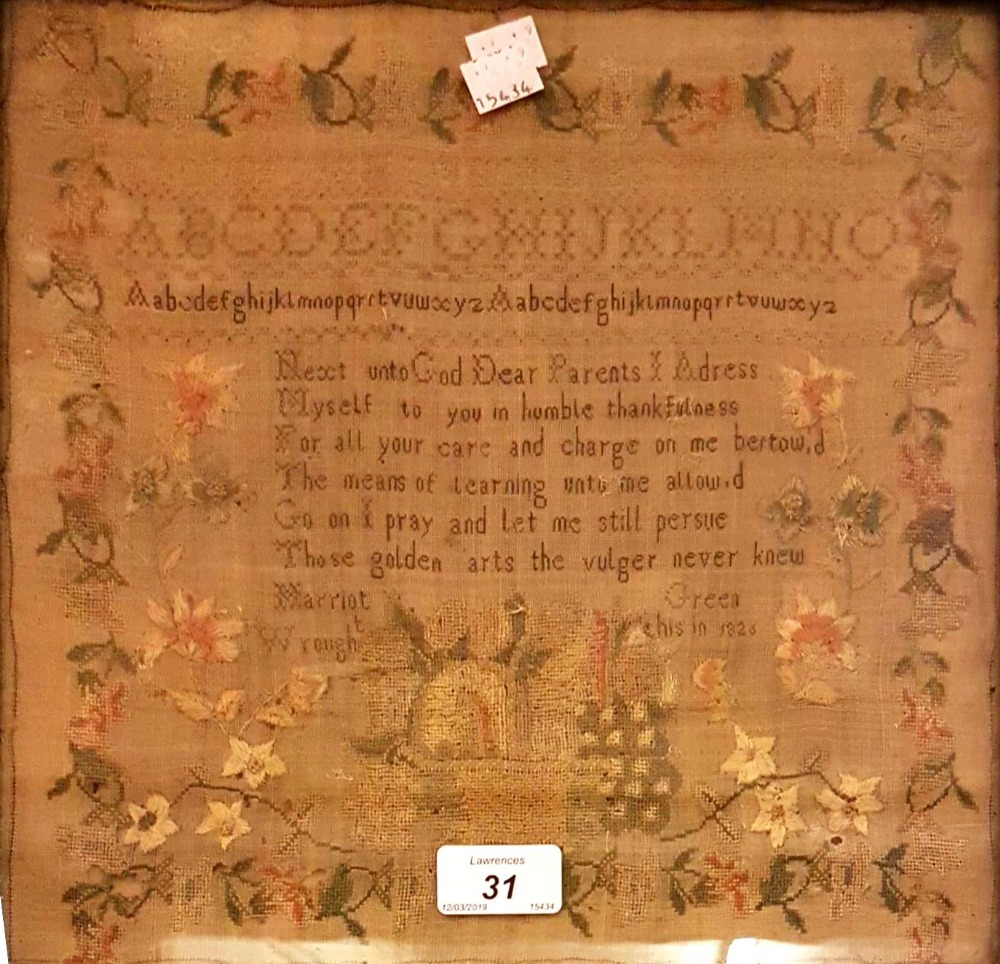 15434
ABCDEFGHIJKLMNO
Aabcdefghijklmnopqrstvuwxyz Aabcdefghijklmnopqrstvuwxyz
Next unto God Dear Parents I Adress
Myself to you in humble thankfulness
For all your care and charge on me bestow,d
The means of learning unto me allow,d
Go on I pray and let me still persue
Those golden arts the vulger never knew
Harriot Green
Wrought this in 1826
Lawrences
31
12/03/2019 15434